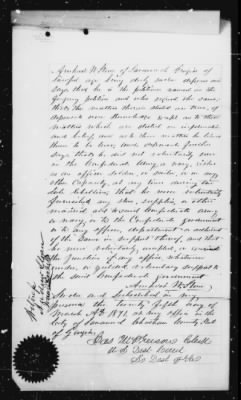 Ambrose W Stone of Savannah Georgia of
lawful age being duly sworn deposes and
says that he is the petitioner named in the
foregoing petition and who signed the same,
that the matters therein stated are true, of
deponent's own knowledge except as to those
matters which are stated on information
and belief and as to those matters he believes
them to be true; and deponent further
says that he did not voluntarily serve
in the Confederate Army or navy, either
as an officer, soldier, or sailor, or in any
other capacity, at any time during the
late rebellion; that he never voluntarily
furnished any stores, supplies, or other
material aid to said Confederate army
or navy, or to the Confederate government
or to any officer, department or adherent
of the same in support thereof, and that
he never voluntarily accepted or exercised
the functions of any office whatsoever
under, or yielded voluntary support to
the said Confederate government
Sworn and subscribed in my
presence this twenty fifth day of
March A.D. 1872 at my office in the
City of Savannah Chatham County, State
of Georgia
Clerk
U S Dist Court
So Dist of Ga